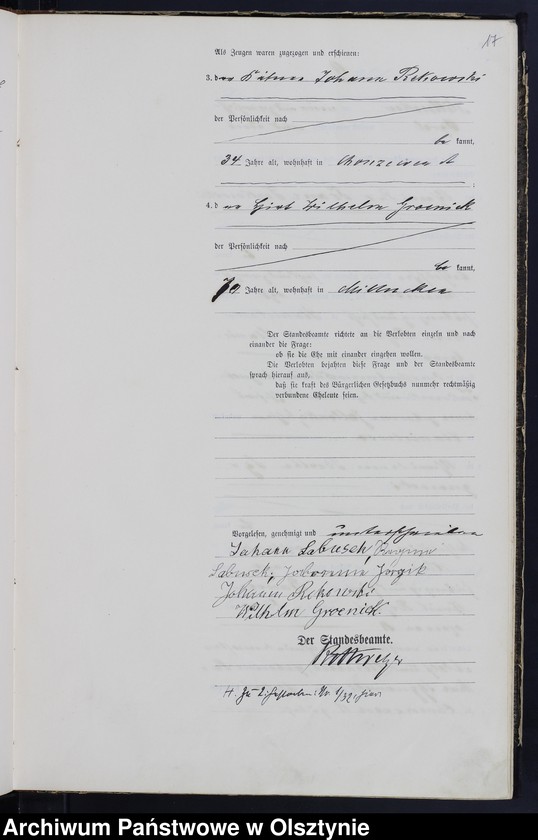 17
Als Zeugen waren zugezogen und erschienen:
3. der Johann Rekowski
der Persönlichkeit nach
be kannt,
34 Jahre alt, wohnhaft in
4. der Wirt Wilhelm Groenick
der Persönlichkeit nach
be kannt,
70 Jahre alt, wohnhaft in Millucken
Der Standesbeamte richtete an die Verlobten einzeln und nach
einander die Frage:
ob sie die Ehe mit einander eingehen wollen.
Die Verlobten bejahten diese Frage und der Standesbeamte
sprach hierauf aus,
daß sie kraft des Bürgerlichen Gesetzbuchs nunmehr rechtmäßig
verbundene Eheleute seien.
Vorgelesen, genehmigt und unterschrieben
Johann Labusch, Regine
Labusch,
Johann Rekowski
Wilhelm Groenick.
Der Standesbeamte.
Archiwum Państwowe w Olsztynie